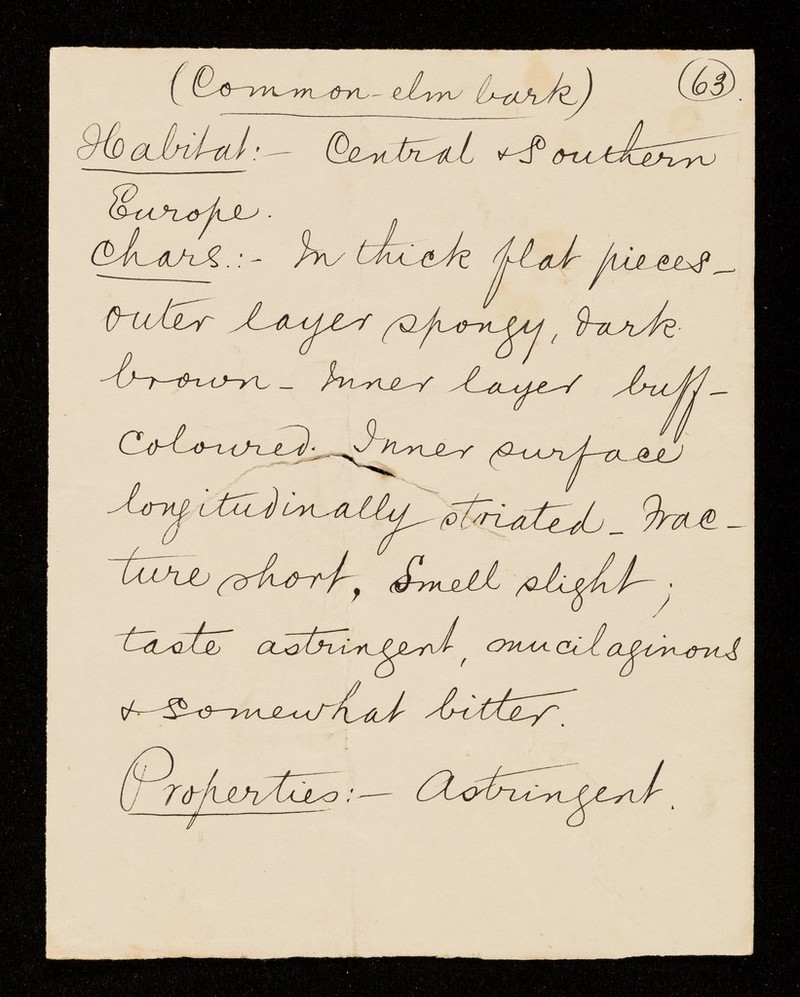 (Common-elm bark) 63.
Habitat:- Central & Southern
Europe.
Chars.:- In thick flat pieces-
outer layer spongy, dark
brown - Inner layer buff-
coloured. Inner surface
longitudinally striated - Frac-
ture short, Smell slight;
taste astringent, mucilaginous
& somewhat bitter.
Properties:- Astringent.